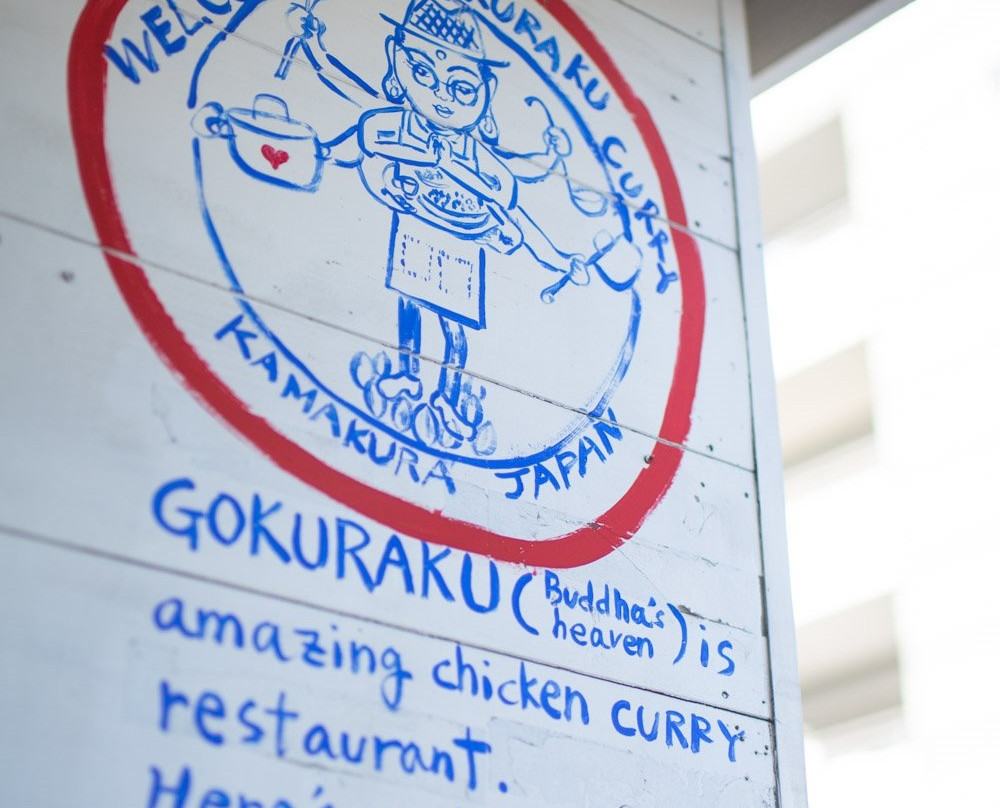 WELC
KURAKU CURRY
KAMAKURA JAPAN
GOKURAKU (Buddha's heaven) is
amazing chicken CURRY
restaurant.
Here's